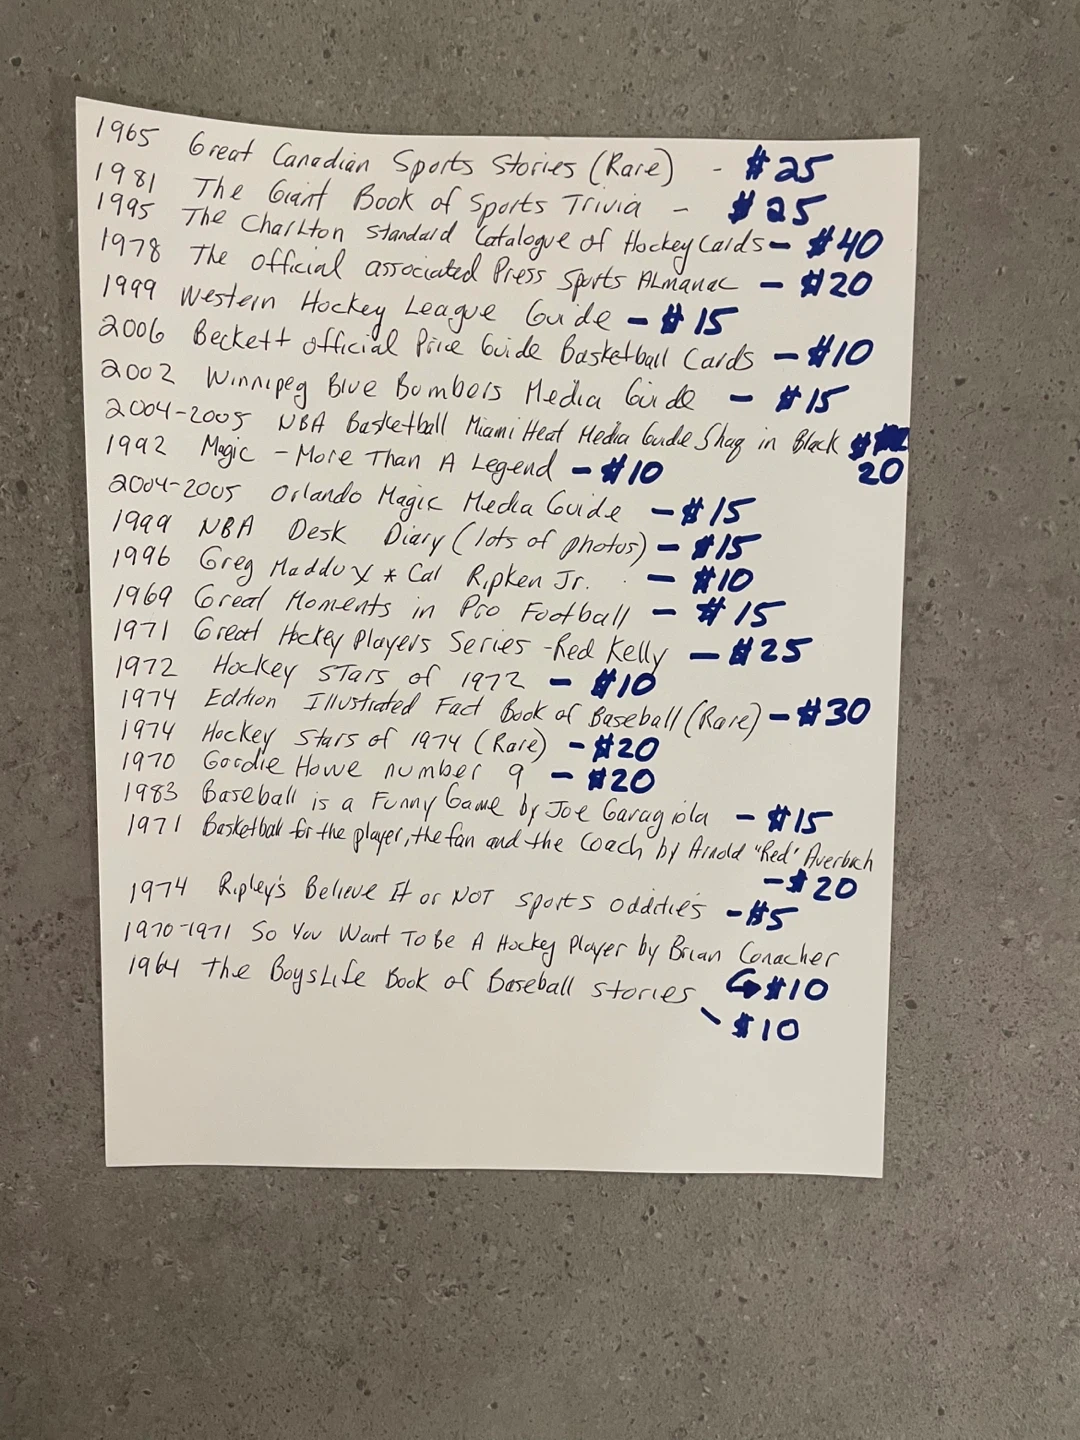 1965 Great Canadian Sports Stories (Rare) - $25
1981 The Giant Book of Sports Trivia - $25
1995 The Charlton Standard Catalogue of Hockey Cards - $40
1978 The official associated Press Sports ALmanac - $20
1999 Western Hockey League Guide - $15
2006 Beckett official Price Guide Basketball Cards - $10
2002 Winnipeg Blue Bombers Media Guide - $15
2004-2005 NBA Basketball Miami Heat Media Guide Shaq in Black $
20
1992 Magic - More Than A Legend - $10
2004-2005 Orlando Magic Media Guide - $15
1999 NBA Desk Diary (lots of photos) - $15
1996 Greg Maddux * Cal Ripken Jr. - $10
1969 Great Moments in Pro Football - $15
1971 Great Hockey Players Series - Red Kelly - $25
1972 Hockey STars of 1972 - $10
1974 Edition Illustrated Fact Book of Baseball (Rare) - $30
1974 Hockey Stars of 1974 (Rare) - $20
1970 Gordie Howe number 9 - $20
1983 Baseball is a Funny Game by Joe Garagiola - $15
1971 Basketball for the player, the fan and the Coach by Arnold "Red" Auerbach
- $20
1974 Ripley's Believe It or NOT sports oddities - $5
1970-1971 So You Want To Be A Hockey Player by Brian Conacher
↳ $10
1964 the Boys Life Book of Baseball stories
- $10